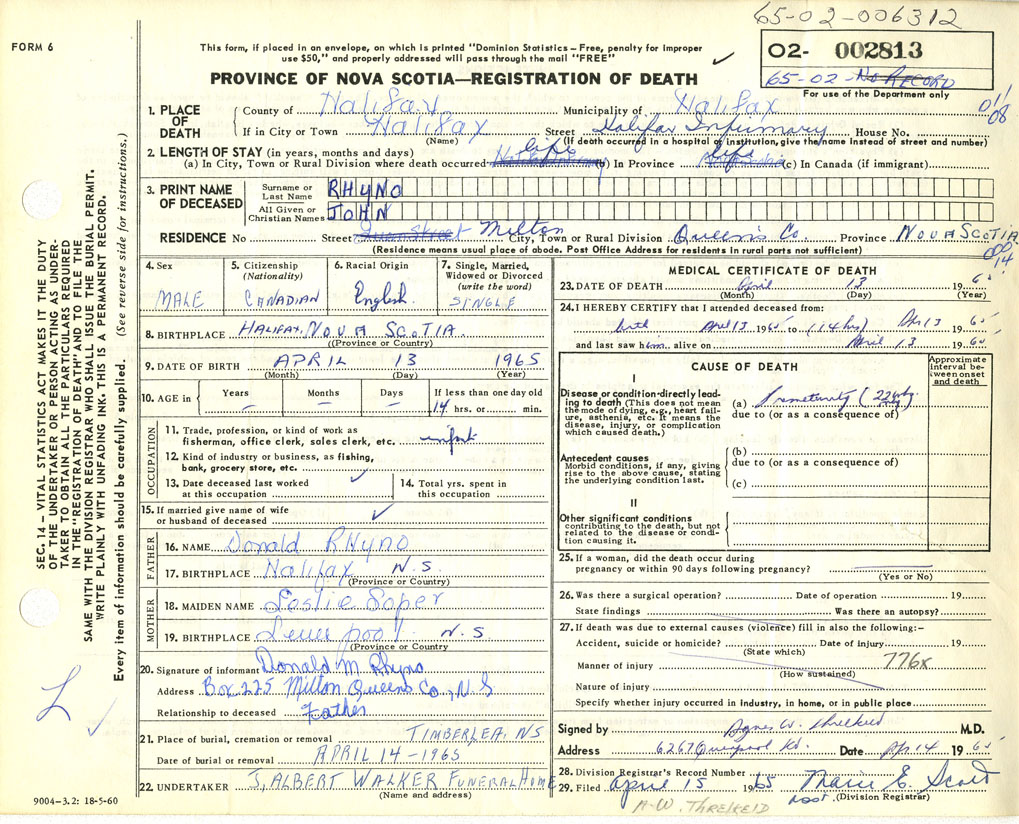 65-02-006312
FORM 6
This form, if placed in an envelope, on which is printed "Dominion Statistics – Free, penalty for improper
use $50," and properly addressed will pass through the mail "FREE"
02- 002813
65-02- No RECORD
For use of the Department only
PROVINCE OF NOVA SCOTIA—REGISTRATION OF DEATH
011
08
1. PLACE OF DEATH
County of Halifax Municipality of Halifax
If in City or Town Halifax Street Halifax Infirmary House No.
(Name) (If death occurred in a hospital or institution, give the name instead of street and number)
2. LENGTH OF STAY (in years, months and days)
(a) In City, Town or Rural Division where death occurred life (b) In Province life (c) In Canada (if immigrant)
3. PRINT NAME OF DECEASED
Surname or Last Name RHYNO
All Given or Christian Names JOHN
RESIDENCE No Street Milton City, Town or Rural Division Queen's Co Province NOVA SCOTIA
(Residence means usual place of abode. Post Office Address for residents in rural parts not sufficient)
14
4. Sex
MALE
5. Citizenship
(Nationality)
CANADIAN
6. Racial Origin
English
7. Single, Married,
Widowed or Divorced
(write the word)
SINGLE
8. BIRTHPLACE HALIFAX, NOVA SCOTIA
(Province or Country)
9. DATE OF BIRTH APRIL 13 1965
(Month) (Day) (Year)
10. AGE in
Years Months Days If less than one day old
– – – 14 hrs. or min.
OCCUPATION
11. Trade, profession, or kind of work as
fisherman, office clerk, sales clerk, etc. infant
12. Kind of industry or business, as fishing,
bank, grocery store, etc.
13. Date deceased last worked
at this occupation
14. Total yrs. spent in
this occupation
15. If married give name of wife
or husband of deceased
FATHER
16. NAME Donald Rhyno
17. BIRTHPLACE Halifax N.S.
(Province or Country)
MOTHER
18. MAIDEN NAME Leslie Soper
19. BIRTHPLACE N.S.
(Province or Country
20. Signature of informant Donald M. Rhyno
Address Box 225 Milton Queens Co., N.S
Relationship to deceased Father
21. Place of burial, cremation or removal TIMBERLEA, NS
Date of burial or removal APRIL 14-1965
22. UNDERTAKER J, ALBERT WALKER FUNERAL HOME
(Name and address)
9004-3.2: 18-5-60
MEDICAL CERTIFICATE OF DEATH
23. DATE OF DEATH April 13 196
(Month) (Day) (Year)
24. I HEREBY CERTIFY that I attended deceased from:
birth April 13 1965 to (14 hrs) Apr 13 1965
and last saw him alive on April 13 1965
CAUSE OF DEATH
Approximate
interval be-
tween onset
and death
I
Disease or condition directly lead-
ing to death (This does not mean
the mode of dying, e.g., heart fail-
ure, asthenia, etc. It means the
disease, injury, or complication
which caused death.)
(a) Prematurity (22 wks)
due to (or as a consequence of)
Antecedent causes
Morbid conditions, if any, giving
rise to the above cause, stating
the underlying condition last.
(b)
due to (or as a consequence of)
(c)
II
Other significant conditions
contributing to the death, but not
related to the disease or condi-
tion causing it.
25. If a woman, did the death occur during
pregnancy or within 90 days following pregnancy?
(Yes or No)
26. Was there a surgical operation? Date of operation 19
State findings Was there an autopsy?
27. If death was due to external causes (violence) fill in also the following:–
Accident, suicide or homicide? Date of injury 19
(State which)
Manner of injury 776x
(How sustained)
Nature of injury
Specify whether injury occurred in industry, in home, or in public place
Signed by Agnes W. Threlkeld M.D.
Address 6267 Quinpool Rd. Date Apr 14 1965
28. Division Registrar's Record Number
29. Filed April 15 1965 Marie E. Scott
asst. (Division Registrar)
A-W. THRELKELD
SEC. 14 – VITAL STATISTICS ACT MAKES IT THE DUTY
OF THE UNDERTAKER OR PERSON ACTING AS UNDER-
TAKER TO OBTAIN ALL THE PARTICULARS REQUIRED
IN THE "REGISTRATION OF DEATH" AND TO FILE THE
SAME WITH THE DIVISION REGISTRAR WHO SHALL ISSUE THE BURIAL PERMIT.
WRITE PLAINLY WITH UNFADING INK. THIS IS A PERMANENT RECORD.
Every item of information should be carefully supplied. (See reverse side for instructions.)
L